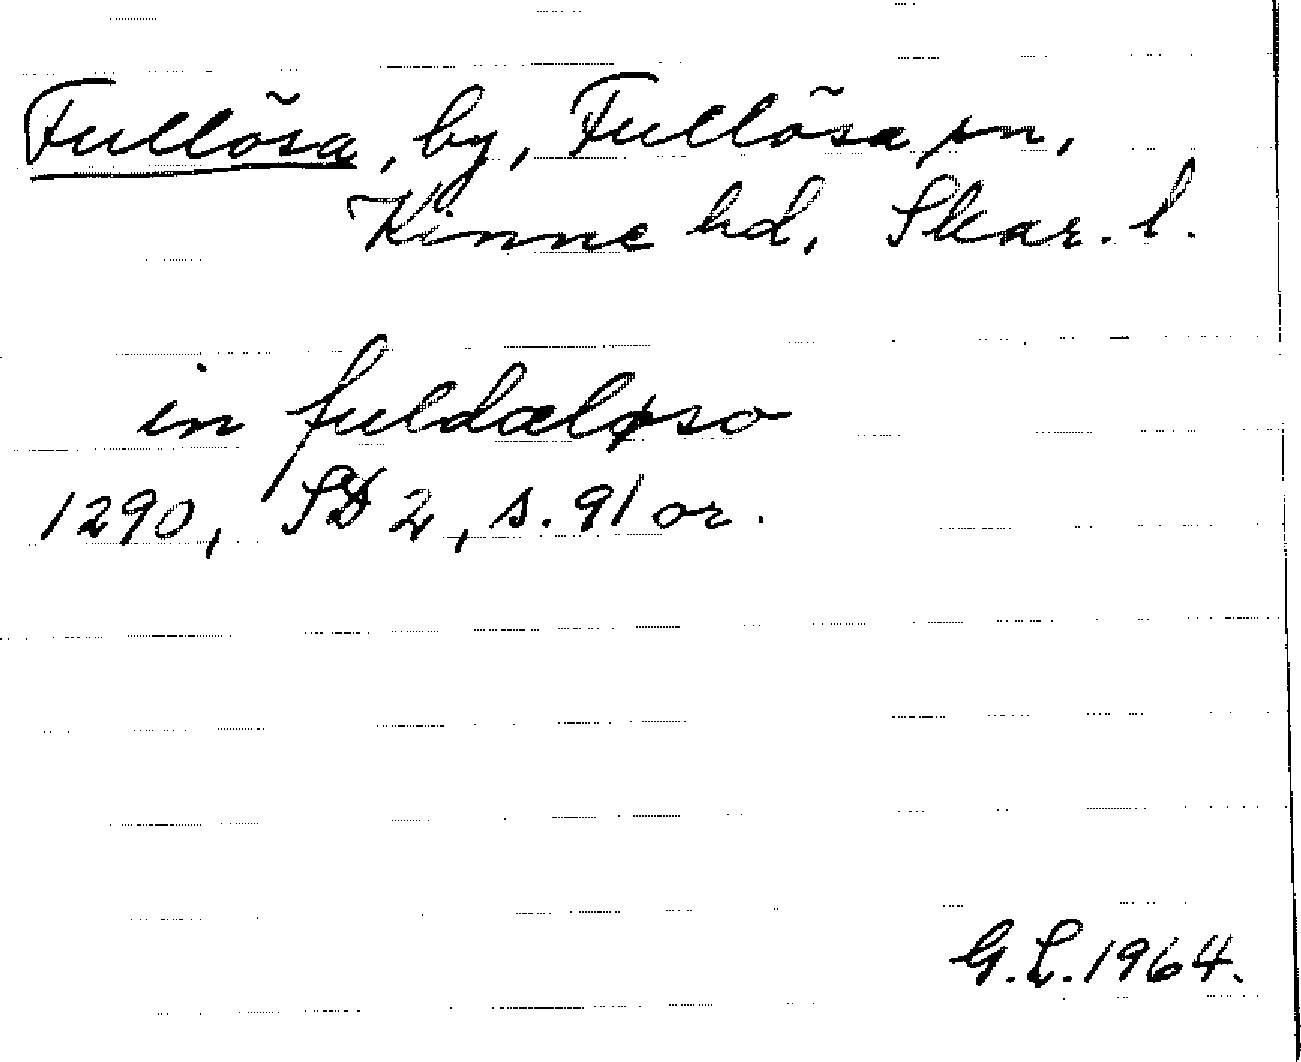 Fullösa, by, Fullösa sn,
Kinne hd, Skar. l.
in fuldæløso
1290, SD 2, s. 91 or.
G.L. 1964.